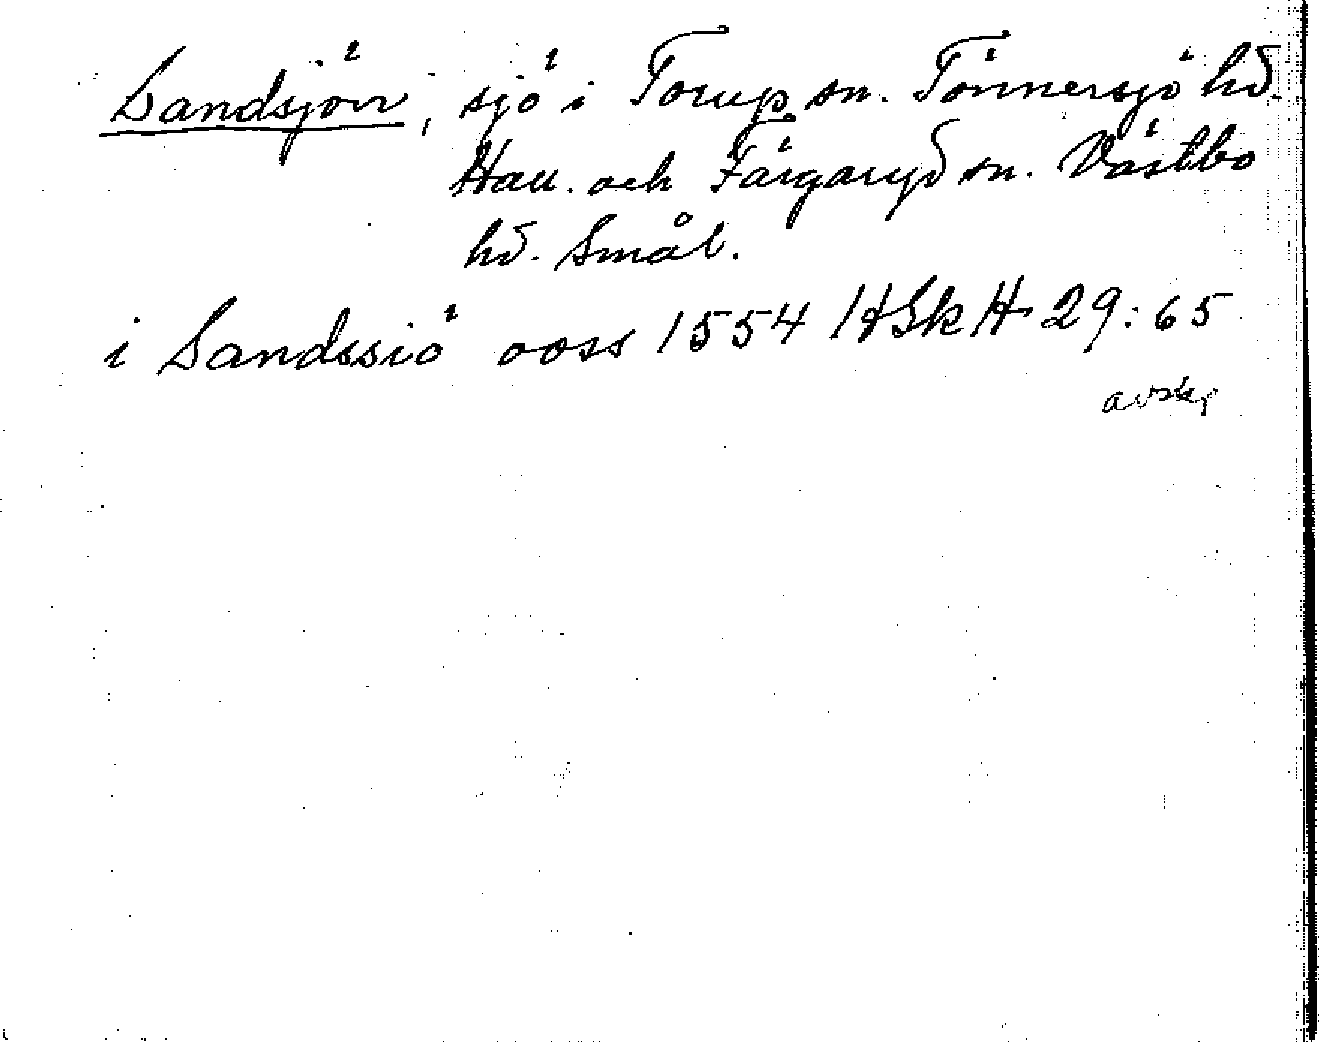 Sandsjön, sjö i Torup sn. Tönnersjö hd.
Hall. och Färgaryd sn. Västbo
hd. Smål.
i Sandssiö ooss 1554 HSkH 29:65
avskr